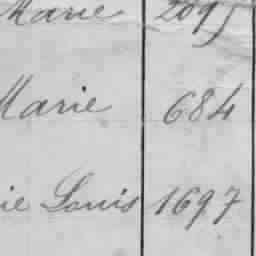 Marie 2095
Marie 684
ie Louis 1697